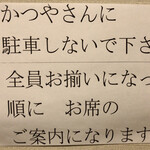 かつやさんに
駐車しないで下さ
全員お揃いになっ
順に お席の
ご案内になります